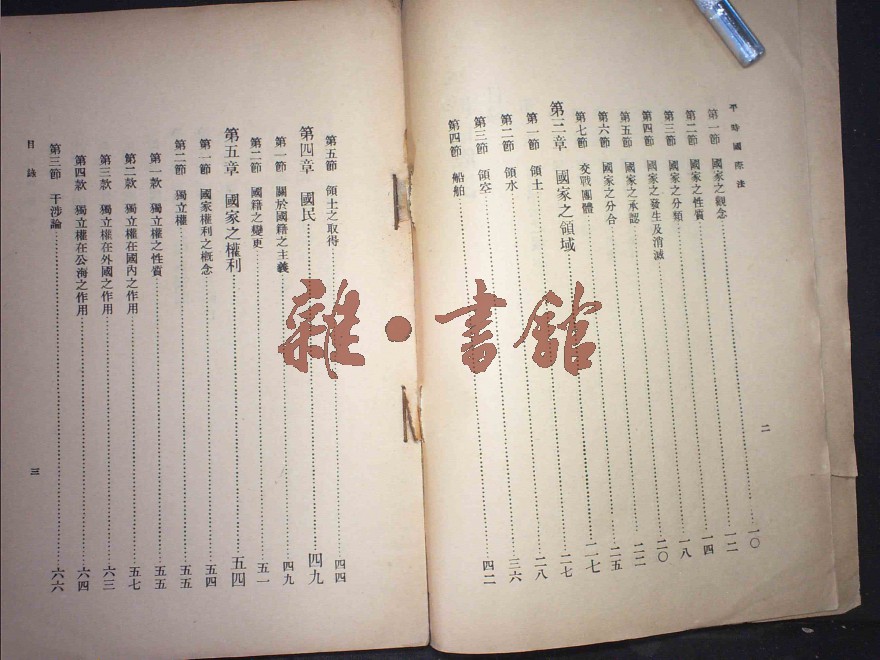 平時國際法
第一節 國家之觀念……一〇
第二節 國家之性質……一二
第三節 國家之分類……一四
第四節 國家之發生及消滅……一八
第五節 國家之承認……二〇
第六節 國家之分合……二二
第七節 交戰團體……二五
第三章 國家之領域……二七
第一節 領土……二七
第二節 領水……二八
第三節 領空……三六
第四節 船舶……四二
二
第五節 領土之取得……四四
第四章 國民……四九
第一節 關於國籍之主義……四九
第二節 國籍之變更……五一
第五章 國家之權利……五四
第一節 國家權利之概念……五四
第二節 獨立權……五五
第一款 獨立權之性質……五五
第二款 獨立權在國內之作用……五七
第三款 獨立權在外國之作用……六三
第四款 獨立權在公海之作用……六四
第三節 干涉論……六六
目錄
三
雜·書館